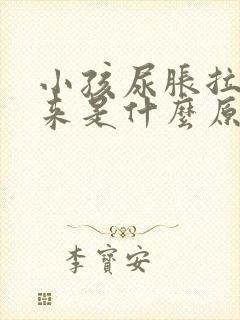 小孩尿脹拉
来是什麼原
李寶安